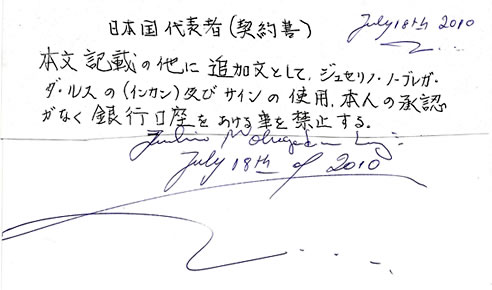 日本国代表者(契約書)
July 18th 2010
本文記載の他に追加文として、ジュセリノ・ノーブレガ・
ダ・ルスの(インカン)及びサインの使用、本人の承認
がなく銀行口座をあける事を禁止する。
July 18th of 2010